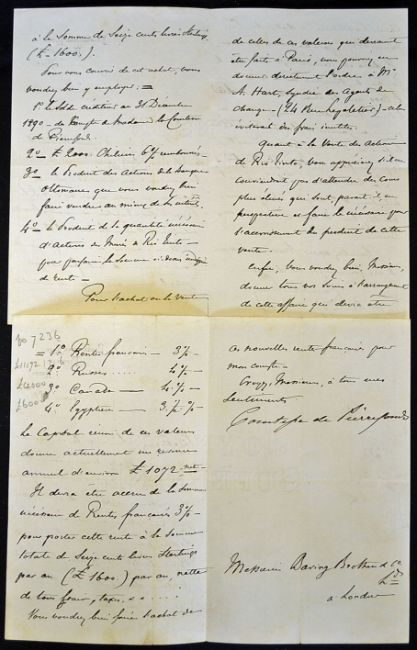 à la Somme de Seize cents livres Sterling
(£ 1600.).
Pour vous couvrir de cet achat, vous
voudrez bien y employer: =
1º le Solde créditeur au 31 Décembre
1890 - du Compte de Madame la Comtesse
de Pierrefonds.
2º = £ 2000. Chiliens 6% remboursés
3º = le Produit des Actions de la Banque
Ottomane que vous voudrez bien
faire vendre au mieux de
4º le Produit de la quantité nécessaire
d'Actions de Rio Tinto -
pour parfaire la Somme ci-dessus
de rente -
Pour l'achat ou la vente
de celles de ces valeurs qui devront
être faits à Paris, vous pourrez en
donner directement l'ordre à Mr
A. Hart, Syndic des Agents de
Change - (24 Rue Lepeletier) -
éviterait des frais inutiles.
Quant à la Vente des Actions
de Rio Tinto, vous apprécierez s'il ne
conviendrait pas d'attendre des cours
plus élevés qui sont, parait-il, en
perspective et faire le nécessaire pour
l'accroissement du produit de cette
vente.
Enfin, Vous voudrez bien, Messieurs,
donner tous vos soins à l'arrangement
de cette affaire qui devra être
7236
£1072
£6000
= 1º Rentes françaises - 3%
2º Russes 4%
3º Canada 4%
4º Egyptien 3½%
Le Capital réuni de ces valeurs
donne actuellement un revenu
annuel d'environ £ 1072 net
Il devra être accru de la somme
nécessaire de Rentes françaises 3%
pour porter cette rente à la somme
totale de Seize cents livres Sterlings
par an (£ 1600) par an, nette
de tous frais, taxes,
Vous voudrez bien faire l'achat de
ces nouvelles rentes françaises pour
mon compte.
Croyez, Messieurs, à tous mes
Sentiments
Comtesse de Pierrefonds
Messieurs Baring Brothers & Co
Ld
à Londres